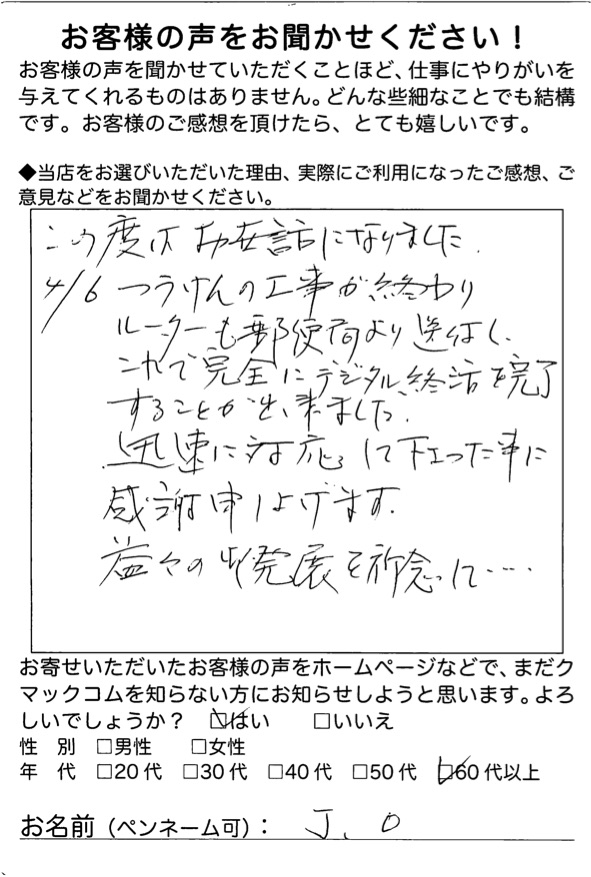 お客様の声をお聞かせください！
お客様の声を聞かせていただくことほど、仕事にやりがいを
与えてくれるものはありません。どんな些細なことでも結構
です。お客様のご感想を頂けたら、とても嬉しいです。
◆当店をお選びいただいた理由、実際にご利用になったご感想、ご
意見などをお聞かせください。
この度はお世話になりました.
4/6 つうけんの工事が終わり
ルーターも郵便局より送付し、
これで完全にデジタル終活を完了
することが出来ました.
迅速に対応して下さった事に
感謝申し上げます.
益々の御発展を祈念して・・・・
お寄せいただいたお客様の声をホームページなどで、まだク
マックコムを知らない方にお知らせしようと思います。よろ
しいでしょうか？ ☑はい □いいえ
性 別 □男性 □女性
年 代 □20代 □30代 □40代 □50代 ☑60代以上
お名前（ペンネーム可）： J. O